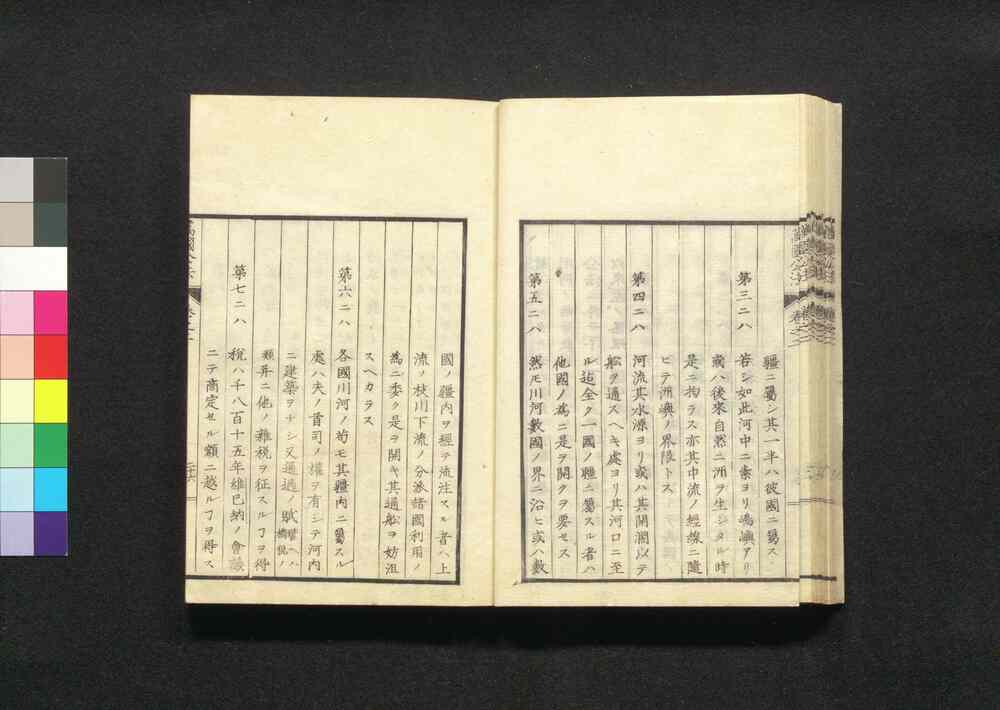 疆ニ屬シ其一半ハ彼國ニ屬ス
第三ニハ
若シ如此河中ニ素ヨリ嶋嶼アリ
或ハ後來自然ニ洲ヲ生シタル時
是ニ拘ラス亦其中流ノ經線ニ隨
ヒテ洲嶼ノ界限トス
第四ニハ
河流其水源ヨリ或ハ其開濶以テ
船ヲ通スヘキ處ヨリ其河口ニ至
ル迄全ク一國ノ疆ニ屬スル者ハ
他國ノ爲ニ是ヲ開クヲ要セス
第五ニハ
然モ川河數國ノ界ニ沿ヒ或ハ數
國ノ疆内ヲ經テ流注スル者ハ上
流ノ枝川下流ノ分派諸國利用ノ
爲ニ委ク是ヲ開キ其通船ヲ妨沮
スヘカラス
第六ニハ
各國川河ノ苟モ其疆内ニ屬スル
處ハ夫ノ首司ノ權ヲ有シテ河内
ニ建築ヲナシ又通過ノ賦譬ヘハ橋税ノ
類并ニ他ノ雜税ヲ征スルヿヲ得
第七ニハ
税ハ千八百十五年維也納ノ會議
ニテ商定セル額ニ越ルヿヲ得ス
萬國公法